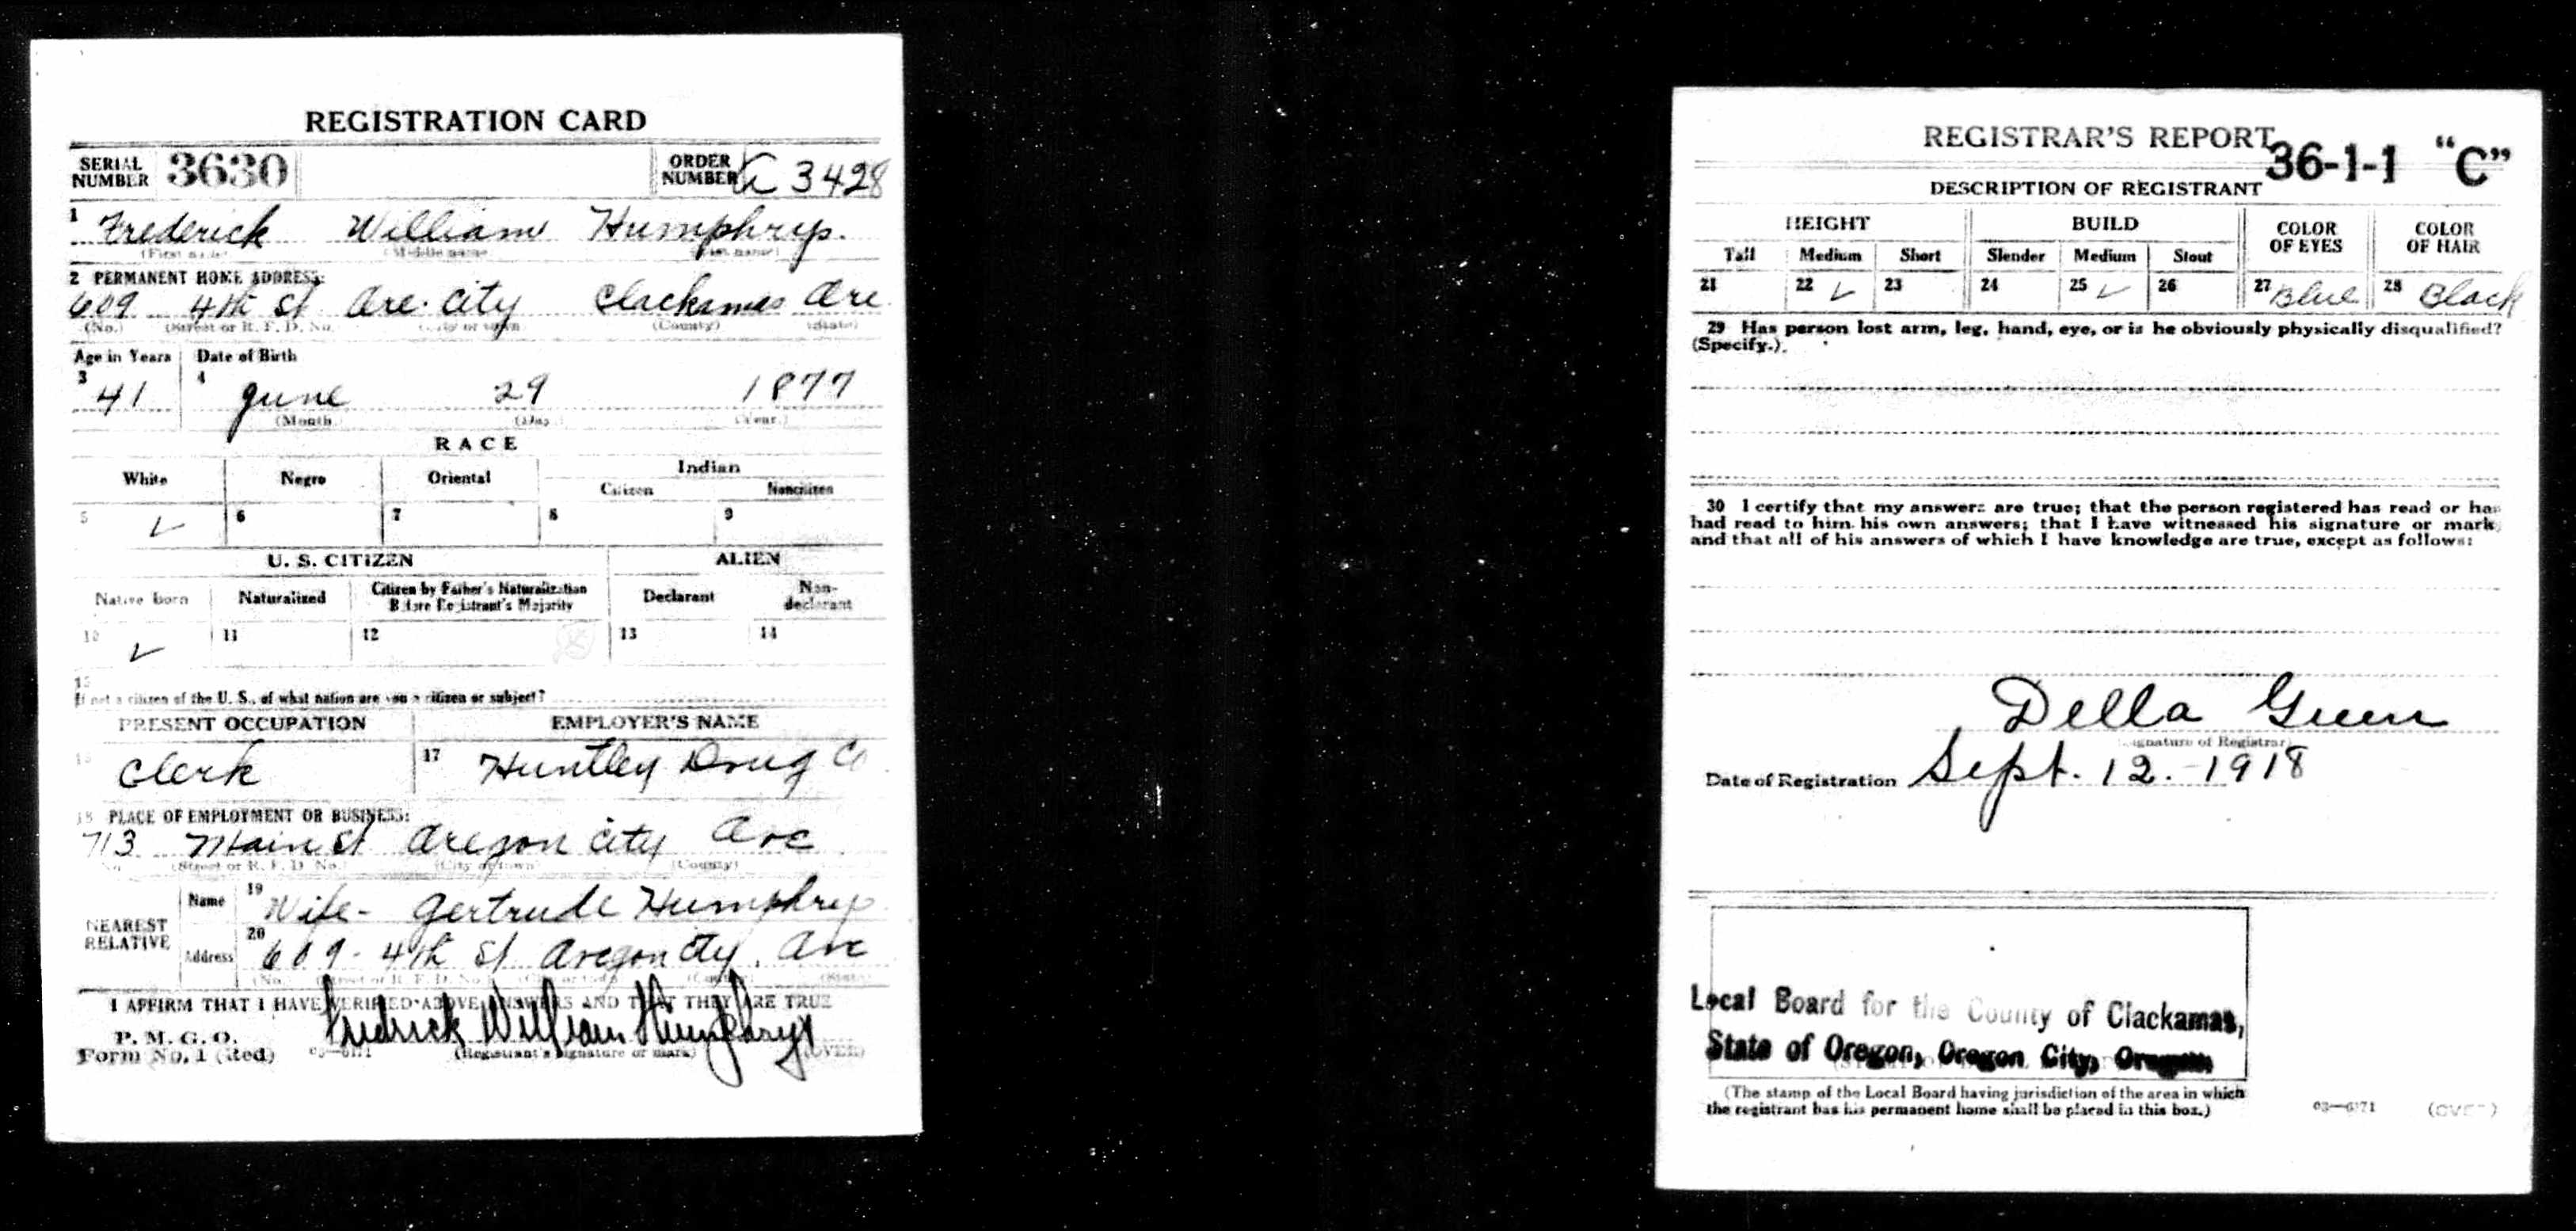 REGISTRATION CARD
SERIAL NUMBER 3630 ORDER NUMBER A 3428
1 Frederick William Humphrys.
(First name) (Middle name) (Last name)
2 PERMANENT HOME ADDRESS:
609 4th St Ore. City Clackamas Ore.
(No.) (Street or R. F. D. No.) (City or town) (County) (State)
Age in Years Date of Birth
3 41 4 June 29 1877
(Month.) (Day.) (Year.)
RACE
White Negro Oriental Indian
Citizen Noncitizen
5 ✓ 6 7 8 9
U. S. CITIZEN ALIEN
Native born Naturalized Citizen by Father's Naturalization Before Registrant's Majority Declarant Non-declarant
10 ✓ 11 12 13 14
15
If not a citizen of the U. S., of what nation are you a citizen or subject?
PRESENT OCCUPATION EMPLOYER'S NAME
16 Clerk 17 Huntley Drug Co
18 PLACE OF EMPLOYMENT OR BUSINESS:
713 Main St Oregon City Ore
(No.) (Street or R. F. D. No.) (City or town) (County)
NEAREST RELATIVE
Name 19 Wife - Gertrude Humphrys
Address 20 609 - 4th St Oregon City. Ore
(No.) (Street or R. F. D. No.) (City or town) (County) (State)
I AFFIRM THAT I HAVE VERIFIED ABOVE ANSWERS AND THAT THEY ARE TRUE
P. M. G. O.
Form No. 1 (Red) 03—6171 Fredrick William Humphrys (OVER)
(Registrant's signature or mark)
REGISTRAR'S REPORT
36-1-1 "C"
DESCRIPTION OF REGISTRANT
HEIGHT BUILD COLOR OF EYES COLOR OF HAIR
Tall Medium Short Slender Medium Stout
21 22 ✓ 23 24 25 ✓ 26 27 Blue 28 Black
29 Has person lost arm, leg, hand, eye, or is he obviously physically disqualified?
(Specify.)
30 I certify that my answers are true; that the person registered has read or has
had read to him his own answers; that I have witnessed his signature or mark,
and that all of his answers of which I have knowledge are true, except as follows:
Della Green
(Signature of Registrar)
Date of Registration Sept. 12. - 1918
Local Board for the County of Clackamas,
State of Oregon, Oregon City, Oregon
(The stamp of the Local Board having jurisdiction of the area in which
the registrant has his permanent home shall be placed in this box.)
03—6171 (OVER)